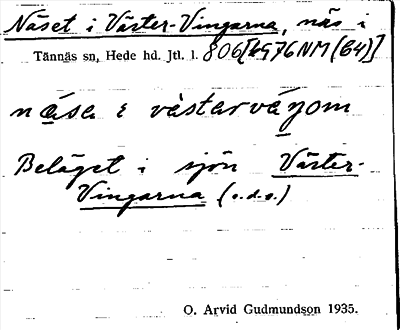 Näset i Väster-Vingarna, näs i
Tännäs sn, Hede hd. Jtl. l. 806[4976NM(64)]
näsa i västerväŋom
Beläget i sjön Väster-
Vingarna (o.d.o.)
O. Arvid Gudmundson 1935.